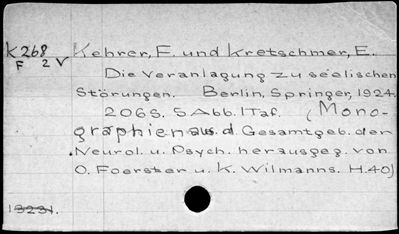 K268 Kehrer, F. und Kretschmer, E.
F 2 V
Die Veranlagung zu seelischen
Störungen. Berlin, Springer, 1924.
206S. 5 Abb. 1 Taf. (Mono-
graphien aus. d. Gesamtgeb. der
Neurol. u. Psych. herausgeg. von
O. Foerster u. K. Wilmanns. H.40)